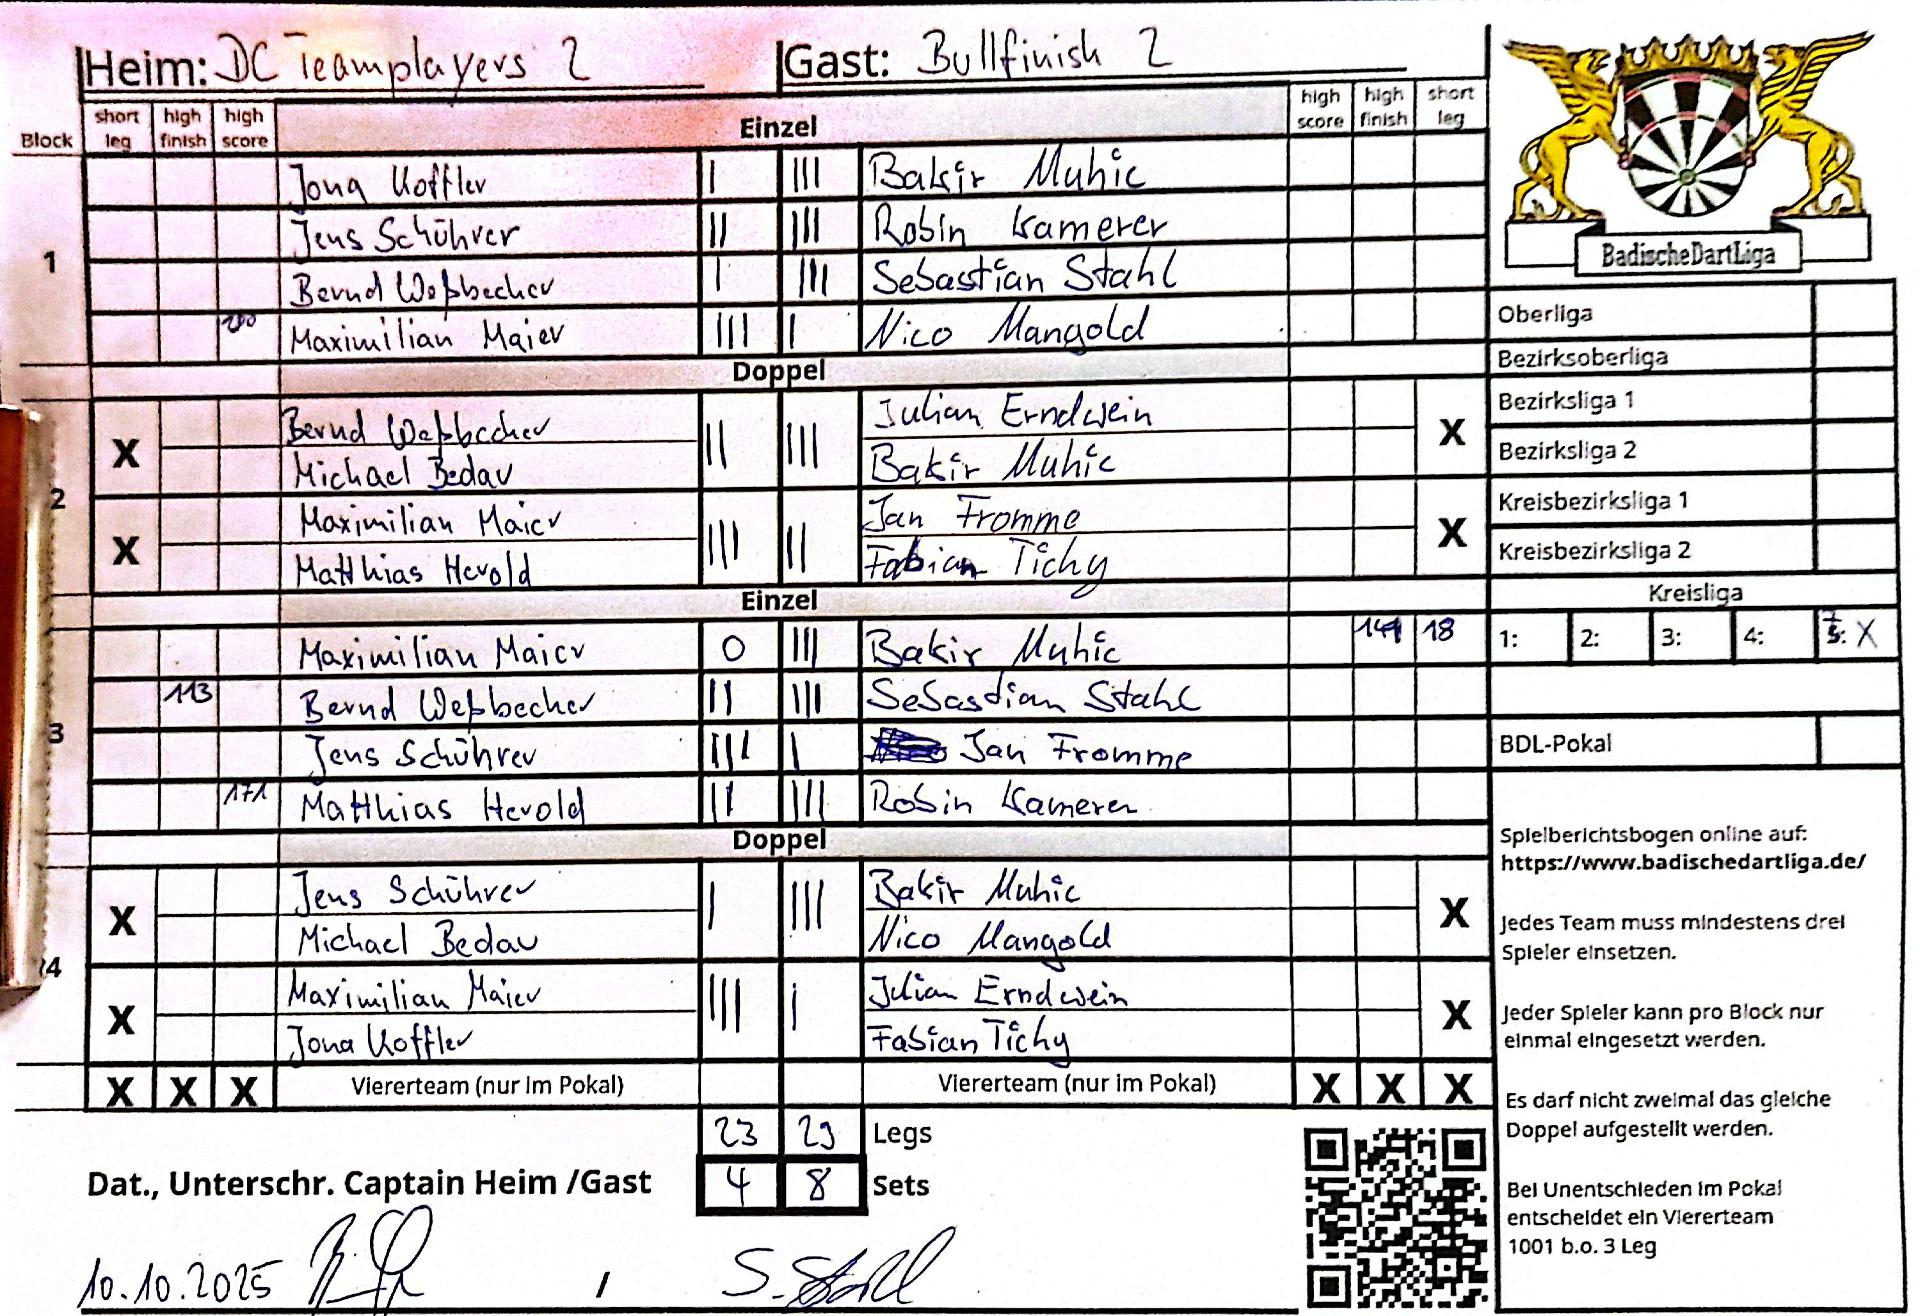 Heim: DC Teamplayers 2 Gast: Bullfinish 2
Block short leg high finish high score Einzel high score high finish short leg
1
Jona Koffler I III Bakir Muhic
Jens Schührer II III Robin Kamerer
Bernd Weßbecher I III Sebastian Stahl
Maximilian Maier III I Nico Mangold
Doppel
2
X Bernd Weßbecher II III Julian Erndwein X
Michael Bedau Bakir Muhic
X Maximilian Maier III II Jan Fromme X
Matthias Herold Fabian Tichy
Einzel
3
Maximilian Maier 0 III Bakir Muhic 18
113 Bernd Weßbecher II III Sebastian Stahl
Jens Schührer III I Jan Fromme
171 Matthias Herold II III Robin Kamerer
Doppel
4
X Jens Schührer I III Bakir Muhic X
Michael Bedau Nico Mangold
X Maximilian Maier III I Julian Erndwein X
Jona Koffler Fabian Tichy
X X X Viererteam (nur im Pokal) Viererteam (nur im Pokal) X X X
23 29 Legs
Dat., Unterschr. Captain Heim /Gast 4 8 Sets
10.10.2025 / S. Stahl
BadischeDartLiga
Oberliga
Bezirksoberliga
Bezirksliga 1
Bezirksliga 2
Kreisbezirksliga 1
Kreisbezirksliga 2
Kreisliga
1: 2: 3: 4: X
BDL-Pokal
Spielberichtsbogen online auf:
https://www.badischedartliga.de/
Jedes Team muss mindestens drei
Spieler einsetzen.
Jeder Spieler kann pro Block nur
einmal eingesetzt werden.
Es darf nicht zweimal das gleiche
Doppel aufgestellt werden.
Bei Unentschieden im Pokal
entscheidet ein Viererteam
1001 b.o. 3 Leg